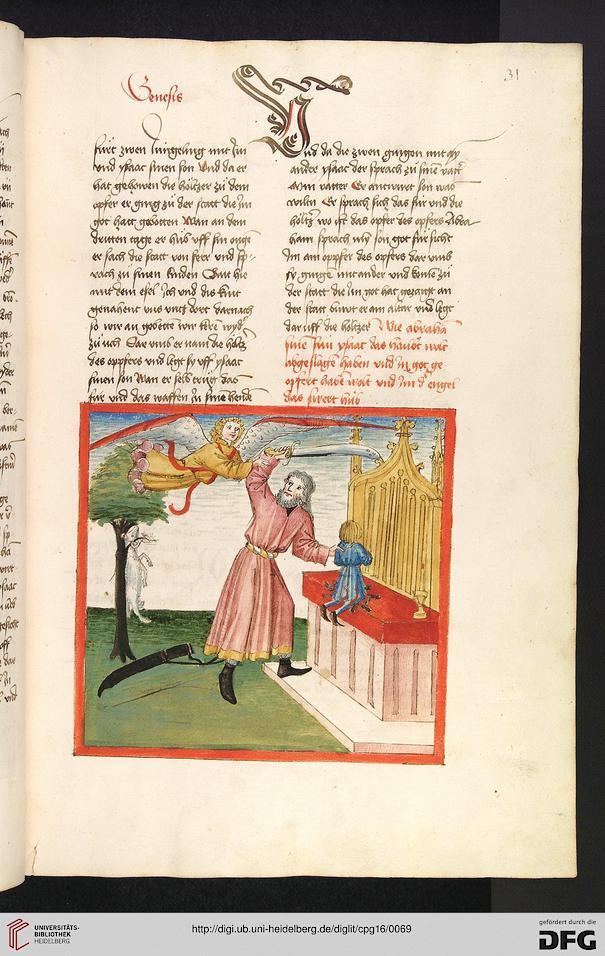 31
Genesis
fürt zwen Jüngeling mit Jm
und ysaac sinen son Und da er
hat gehowen die höltzer zu dem
opfer er ging zu der statt die Jm
got hatt gebotten Wan an dem
dritten tage er hub uff sin ougen
er sach die statt von ferr und sp-
rach zu sinen kinden Bait hie
mit dem esel Jch und dis kint
genahent uns untz dort darnach
so wir an gebetten wir keren wyder
zu üch Dar umb er nam die höltz
des oppfers und legt sy uff ysaac
sinen son Wan er selb trug das
für und das waffen zu sine henden
Und da die zwen gingen mit ay
ander ysaac der sprach zu sine vatter
Min vatter Er antwirt son was
wiltu Er sprach sich das für und die
höltz wo ist das opfer des opfers Abra
ham sprach min son got fürsicht
Jm ain oppfer des opfers dar umb
sy gingen mit ander und komen zu
der statt die Jm got hat gezaigt an
der statt buwt er ain altar und legt
dar uff die höltzer Wie abraham
sine sun ysaac das haubt wolt
abgeslagen haben und in got ge
opfert haben wolt und Jm der engel
das swert hub
UNIVERSITÄTS-
BIBLIOTHEK
HEIDELBERG
http://digi.ub.uni-heidelberg.de/diglit/cpg16/0069
gefördert durch die
DFG